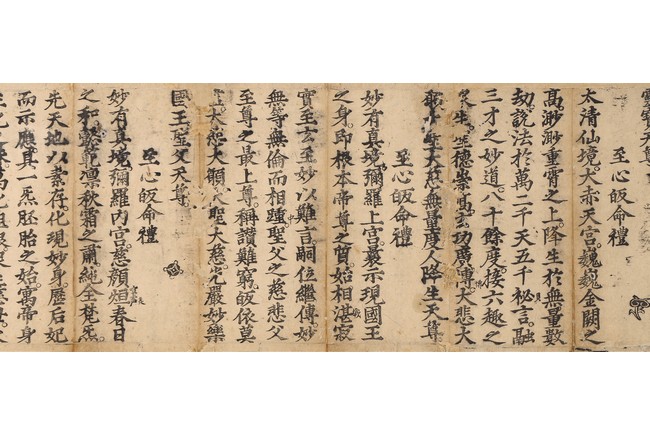 靈寶天尊
至心皈命禮
太清仙境大赤天宮巍巍金闕之
高渺渺重霄之上降生於無量數
劫說法於萬二千天五千祕言融
三才之妙道八十餘度接六趣之
生德崇高玄功廣博大悲大
大慈無量度人降生天尊
至心皈命禮
妙有真境彌羅上宮爰示現國王
之身即根本帝尊之質始相湛寂
實至玄至妙以難言嗣位繼傳妙
無等無倫而相踵聖父之慈悲父
至尊之最上尊稱讚難窮皈依莫
上大悲大願大聖大慈光嚴妙樂
國王聖父天尊
至心皈命禮
妙有真境彌羅內宮慈顏烜春日
之和懿範凜秋霜之肅純全梵炁
先天地以素存化現妙身歷后妃
而示應其一炁胚胎之始寓帝身